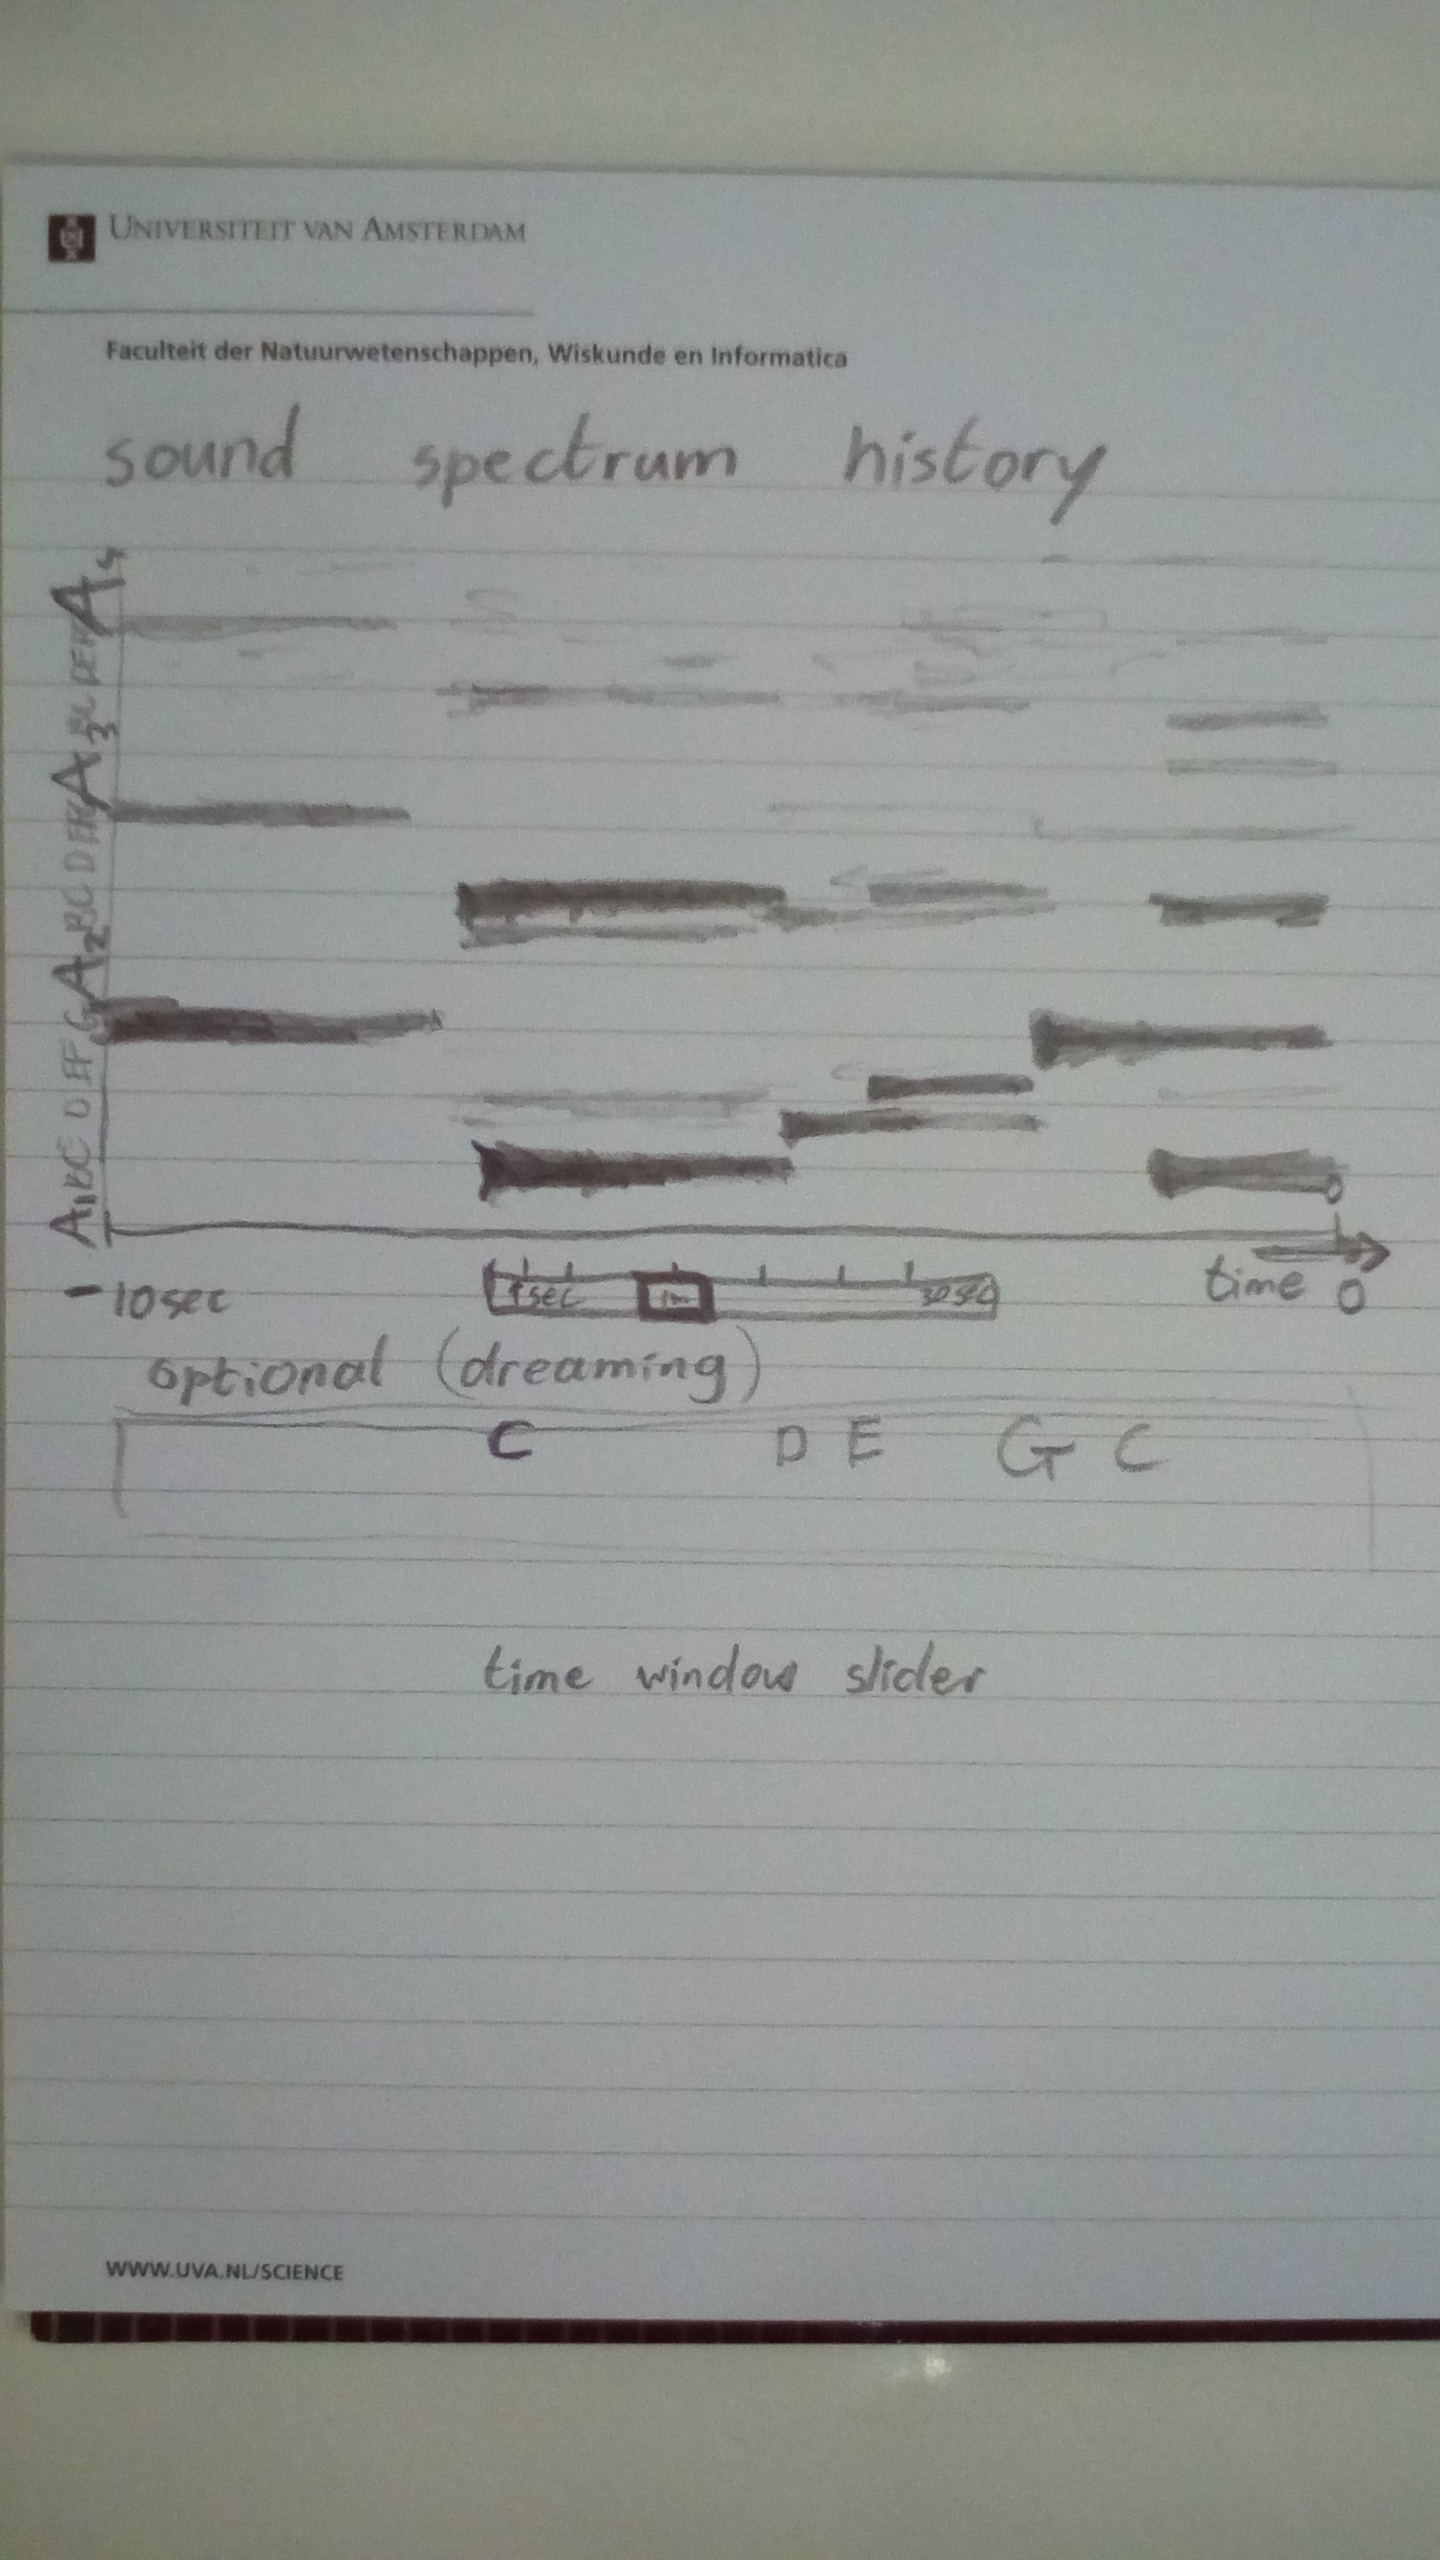 UNIVERSITEIT VAN AMSTERDAM
Faculteit der Natuurwetenschappen, Wiskunde en Informatica
sound spectrum history
A4
A3
A2
A1
-10sec
1sec
30sec
time 0
optional (dreaming)
C D E G C
time window slider
WWW.UVA.NL/SCIENCE